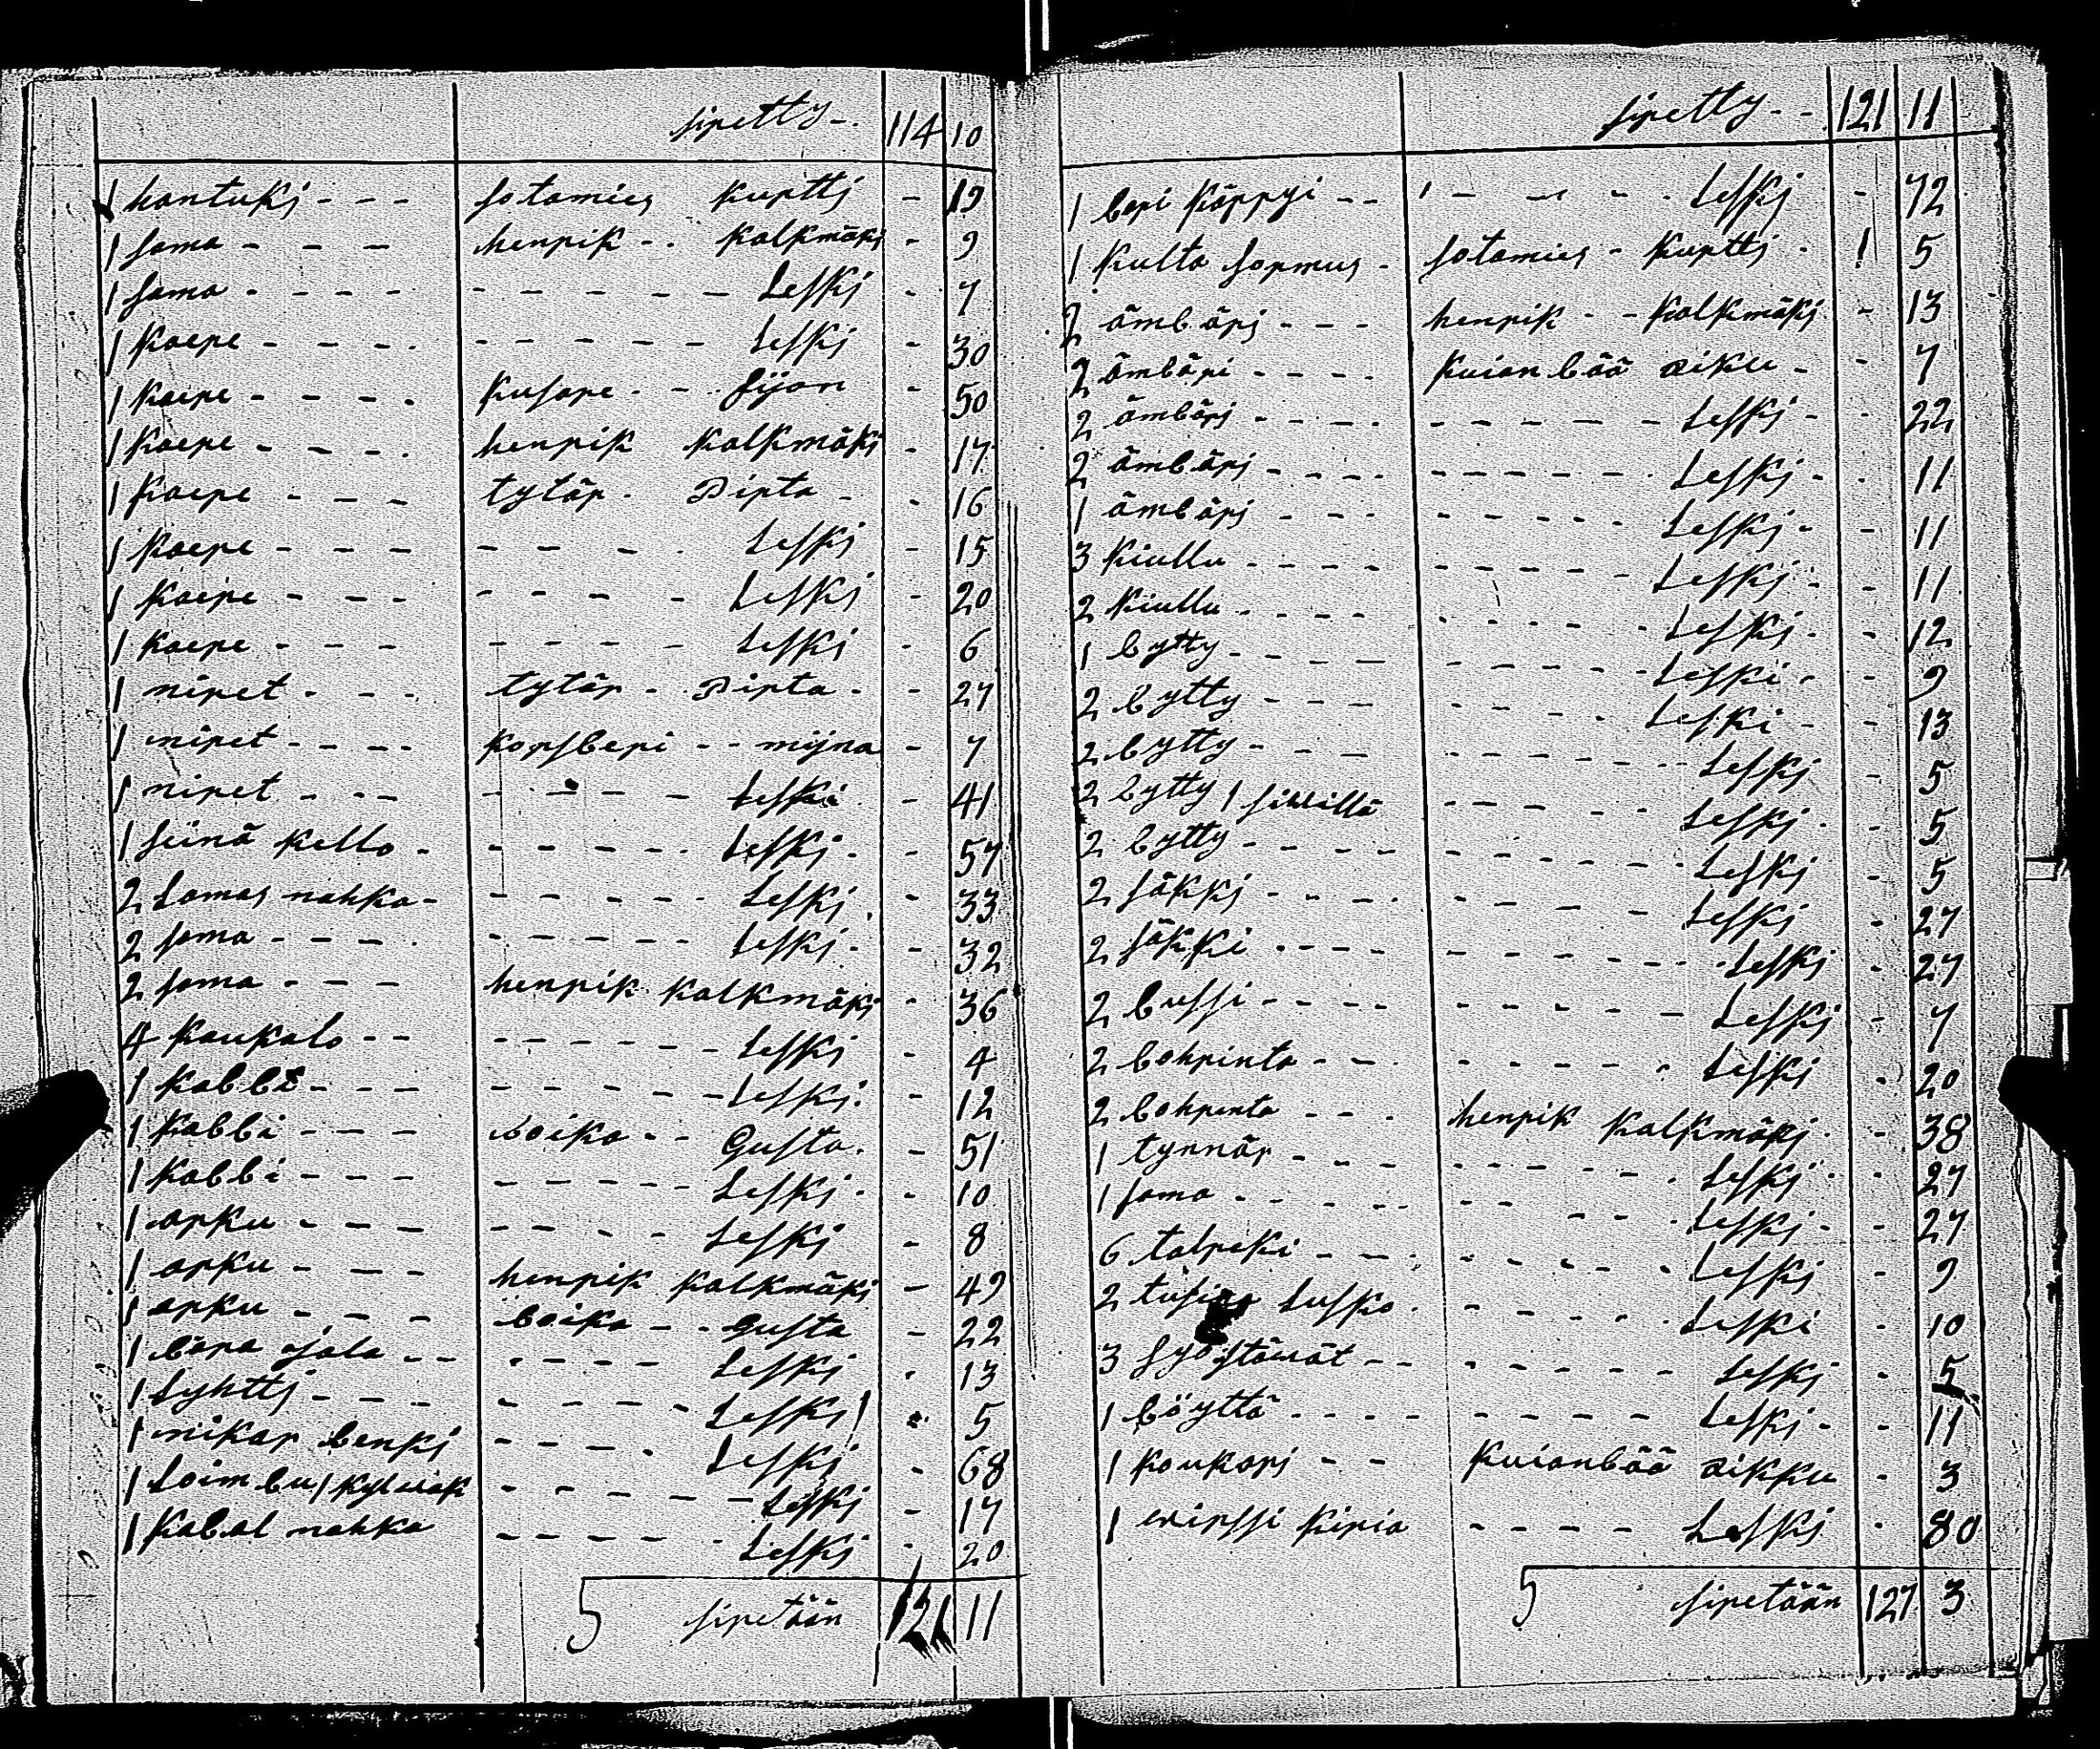 siretty - . 114 10
1 hantukj - - - sotamies kurttj - 19
1 sama - - - henrik - . kalkmäkj - 9
1 sama - - - - - - - - - - Leskj - 7
1 kaere - - - - - - - - - - Leskj - 30
1 kaere - - - - kusare - - Sijan - 50
1 kaere - - - . henrik kalkmäkj - 17
1 kaere - - - tytär - Pirta - - 16
1 kaere - - - - - - - Leskj - 15
1 kaere - - - - - - - - Leskj - 20
1 kaere - - - - - - - - Leskj - 6
1 niret - - - tytär - Pirta - - 27
1 niret - - - - korsberi - - mijna - 7
1 niret - - - - - - - - Leski - 41
1 seinä kello - - - - - - Leskj - - 57
2 Lamas nahka - - - - - - Leskj - 33
2 sama - - - - - - - - - Leskj - - 32
2 sama - - - henrik kalkmäkj - 36
4 kaukalo - - - - - - - - Leskj - 4
1 kabbi - - - - - - - - Leskj - 12
1 kabbi - - - boika - - Gusta - 51
1 kabbi - - - - - - - - Leskj - - 10
1 arku - - - - - - - Leskj - 8
1 arku - - - henrik kalkmäkj - 49
1 arku - - - boika - - Gusta - 22
1 bära jala - - - - - - Leskj - 13
1 Lyhttj - - - - - - - Leskj - 5
1 nikar benkj - - - - Leskj - 68
1 Loim bu / - - - - - Leskj - 17
1 kabal nahka - - - - Leskj - 20
5 siretään 121 11
siretty - - 121 11
1 beri käppyi - - - - - - Leskj - 72
1 kulta sormus - sotamies - kurttj - 1 5
2 ämbärj - - - henrik - - kalkmäkj - 13
2 ämbäri - - - - kuianbää aiku - - 7
2 ämbärj - - - - - - - - - Leskj - - 22
2 ämbärj - - - - - - - - - Leskj - - 11
1 ämbärj - - - - - - - - - Leskj - - 11
3 kiullu - - - - - - - - - Leskj - - 11
2 kiullu - - - - - - - - - Leskj - - 12
1 bytty - - - - - - - - - Leski - - 9
2 bytty - - - - - - - - Leski - - 13
2 bytty - - - - - - - - Leskj - 5
2 bytty / - - - - Leskj - - 5
2 bytty - - - - - - - - - Leskj - 5
2 säkkj - - - - - - - - - Leskj - 27
2 säkki - - - - - - - - - - Leskj - 27
2 bussi - - - - - - - - - Leskj - 7
2 bohrinta - - - - - - - Leskj - 20
2 bohrinta - - - henrik kalkmäkj - - 38
1 tynnär - - - - - - - - - Leskj - - 27
1 sama - - - - - - - - - Leskj - - 27
6 talreki - - - - - - - - Leskj - 9
2 Lusko - - - - - Leski - 10
3 syöstävät - - - - - - - Leskj - 5
1 böyttä - - - - - - - - - Leskj - - 11
1 koukarj - - kuianbää aikku - 3
1 virssi kiria - - - - Leskj - 80
5 siretään 127 3